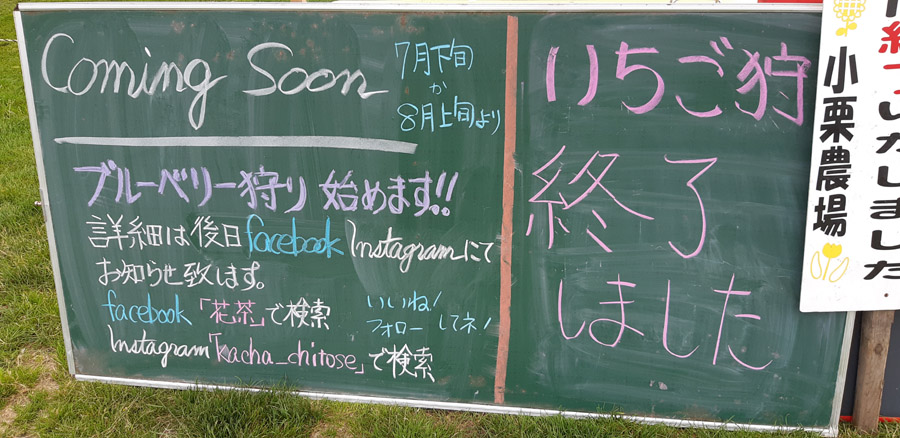 Coming Soon
7月下旬
か
8月上旬より
ブルーベリー狩り 始めます!!
詳細は後日facebook Instagramにて
お知らせ致します。
facebook「花茶」で検索
いいね!
フォローしてネ!
Instagram「kacha_chitose」で検索
いちご狩
終了
しました
終了いたしました
小栗農場